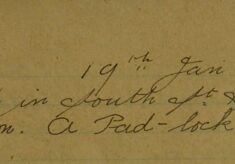 19th Jan
in South St &
n. A Pad-lock